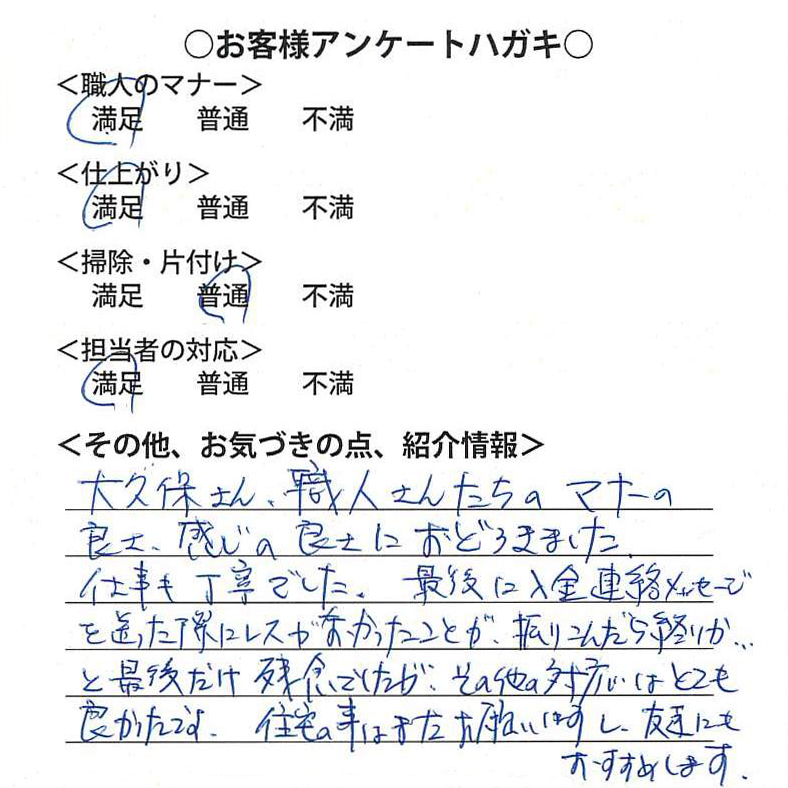 ○お客様アンケートハガキ○
＜職人のマナー＞
満足 普通 不満
＜仕上がり＞
満足 普通 不満
＜掃除・片付け＞
満足 普通 不満
＜担当者の対応＞
満足 普通 不満
＜その他、お気づきの点、紹介情報＞
大久保さん、職人さんたちのマナーの
良さ、感じの良さにおどろきました。
仕事も丁寧でした。最後に入金連絡メッセージ
を送った際にレスがなかったことが、振りこんだら終りか…
と最後だけ残念でしたが、その他の対応はとても
良かったです。住宅の事はまたお願いしますし、友達にも
おすすめします。